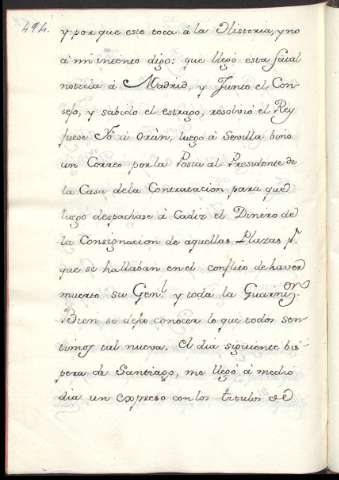 494.
y por que esto toca á la Historia, y no
á mi intento digo: que llegó esta fatal
noticia á Madrid, y Junto el Con-
sejo, y sabido el estrago, resolvió el Rey
fuese Yo á Orán, luego á Sevilla vino
un Correo por la Posta al Presidente de
la Casa de la Contratacion para que
luego despachase á Cadiz el Dinero de
la Consignacion de aquellas Plazas p.r
que se hallaban en el conflicto de haver
muerto su Gen.l y toda la Guarnic.on
Bien se deja conocer lo que todos sen-
timos tal nueva. El dia siguiente bis-
pera de Santiago, me llegó á medio
dia un expreso con los titulos de